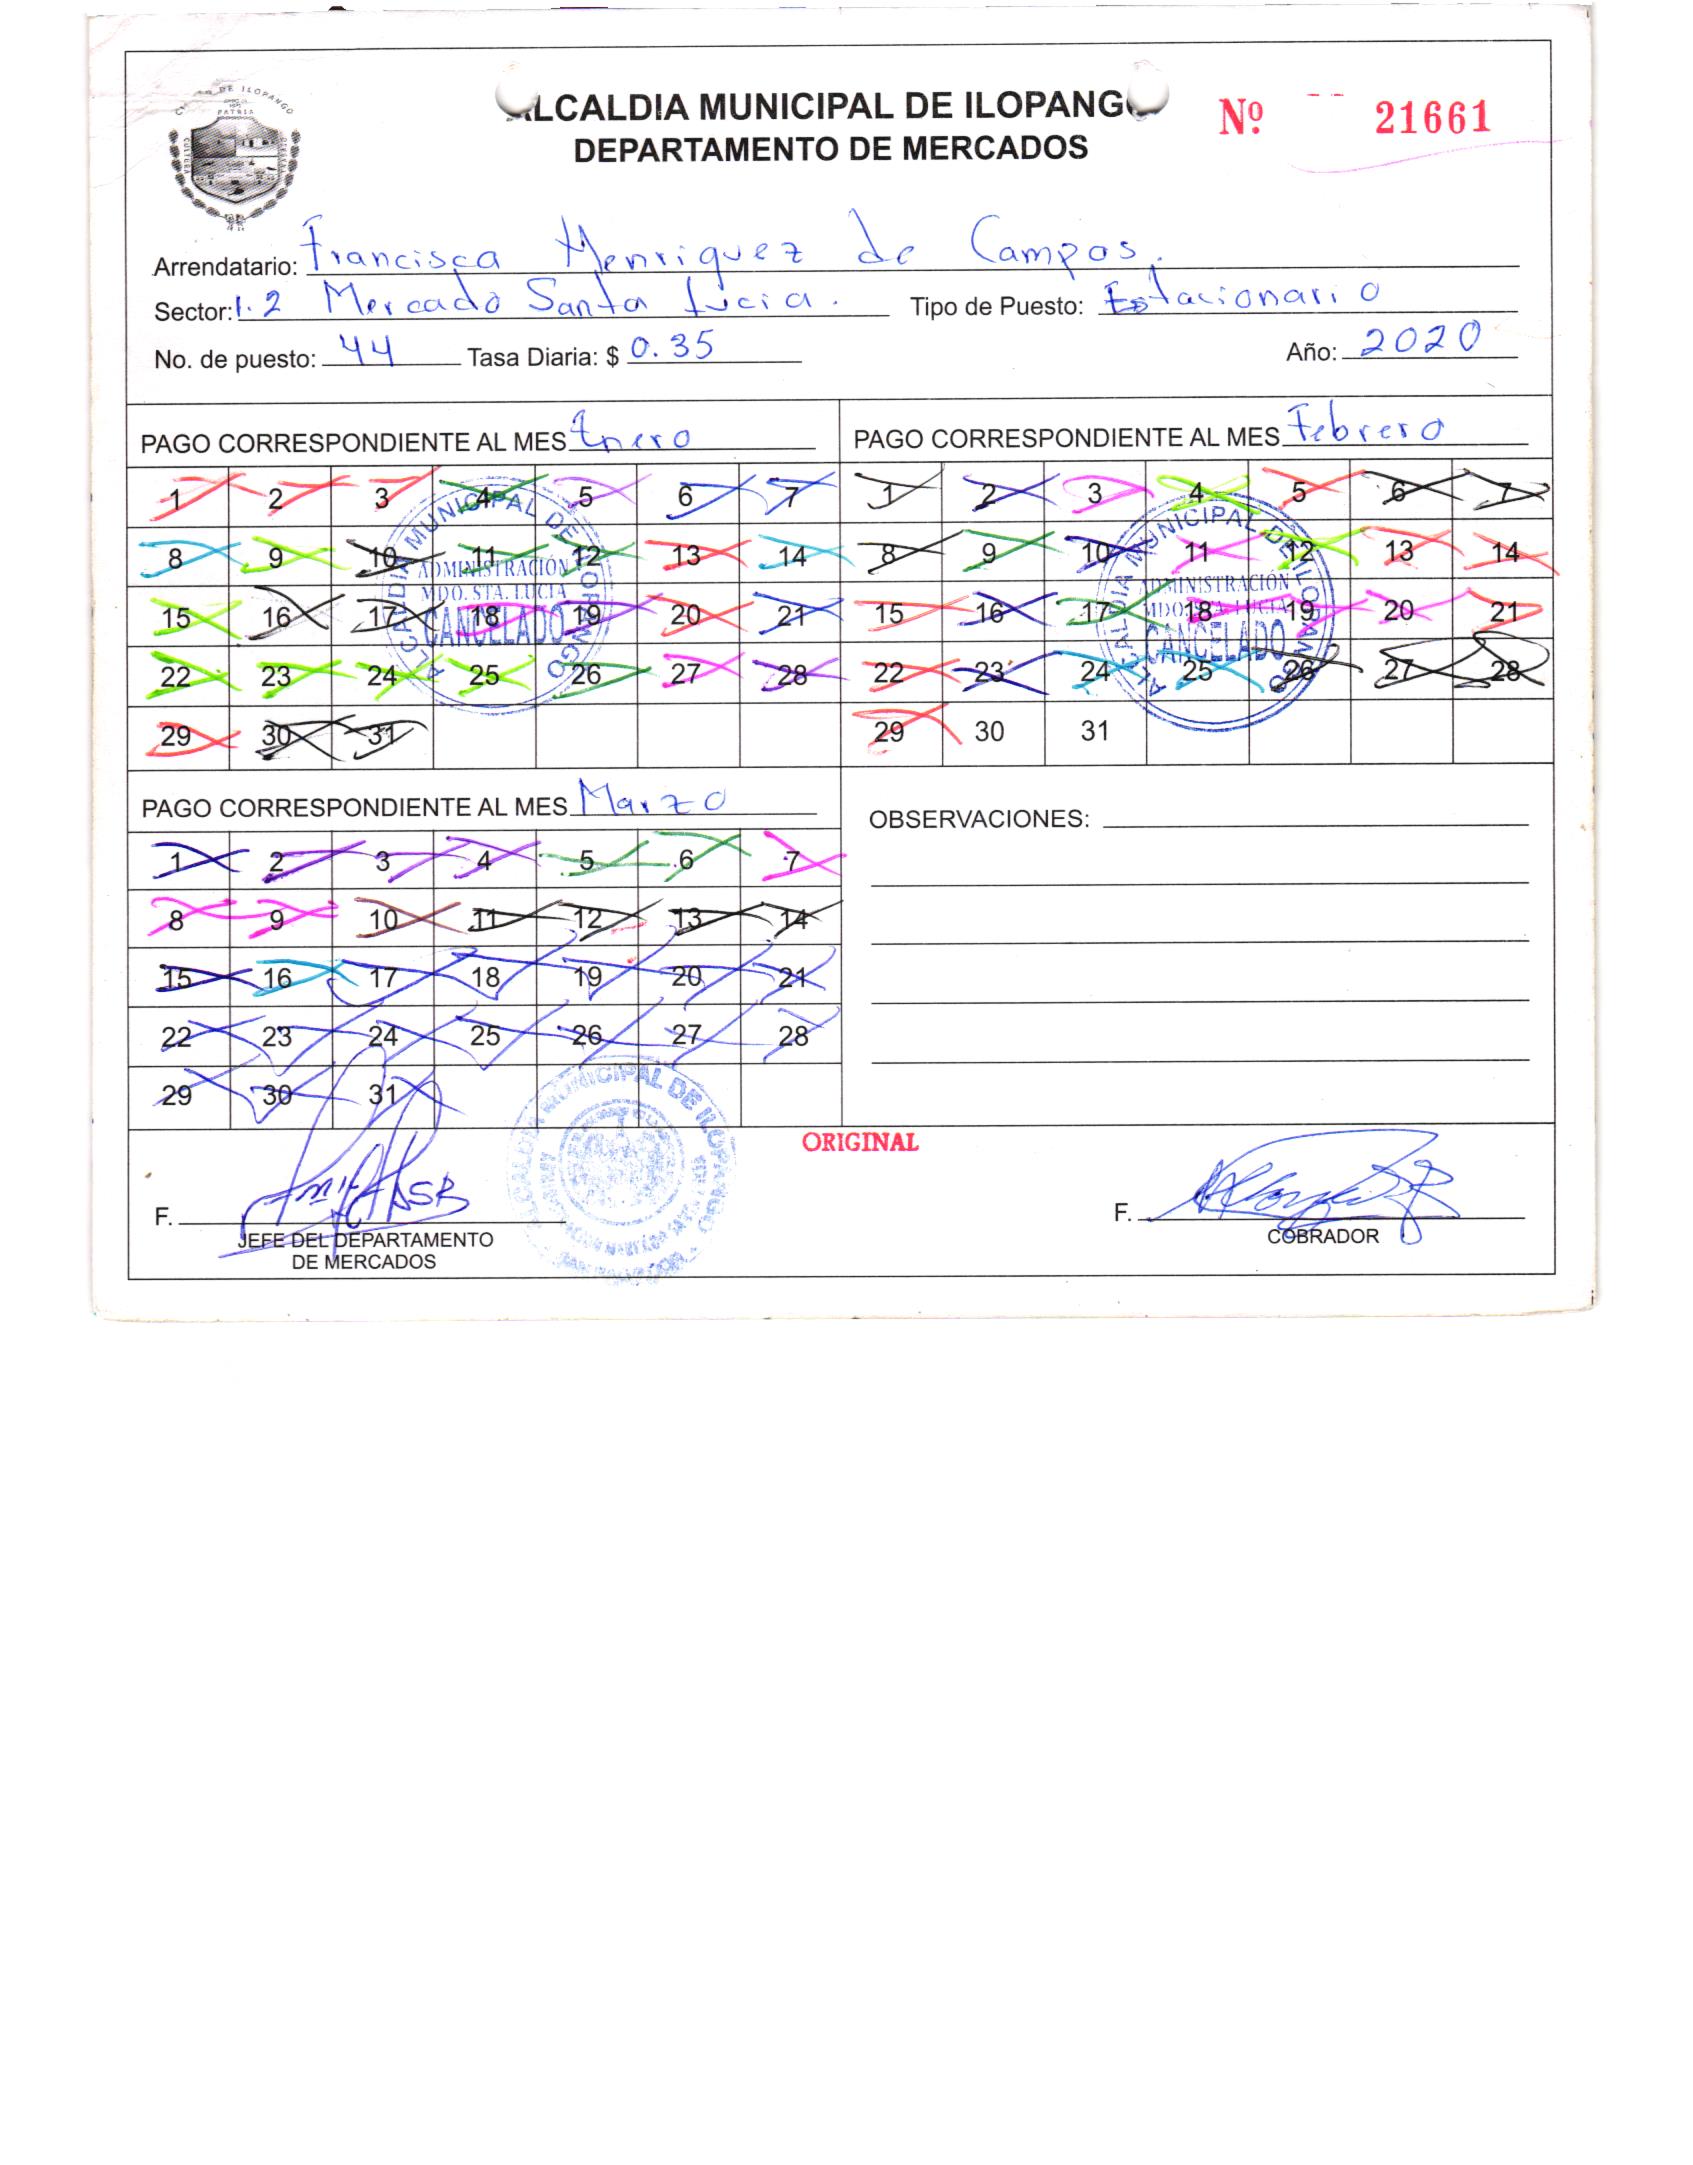 ALCALDIA MUNICIPAL DE ILOPANGO
DEPARTAMENTO DE MERCADOS
Nº 21661
PATRIA
CULTURA
Arrendatario: Francisca Menriquez de Campos.
Sector: 1.2 Mercado Santa Lucia. Tipo de Puesto: Estacionario
No. de puesto: 44 Tasa Diaria: $ 0.35 Año: 2020
PAGO CORRESPONDIENTE AL MES Enero
1 2 3 4 5 6 7
8 9 10 11 12 13 14
15 16 17 18 19 20 21
22 23 24 25 26 27 28
29 30 31
ALCALDIA MUNICIPAL DE ILOPANGO
ADMINISTRACIÓN
MDO. STA. LUCIA
CANCELADO
PAGO CORRESPONDIENTE AL MES Febrero
1 2 3 4 5 6 7
8 9 10 11 12 13 14
15 16 17 18 19 20 21
22 23 24 25 26 27 28
29 30 31
ALCALDIA MUNICIPAL DE ILOPANGO
ADMINISTRACIÓN
MDO. STA. LUCIA
CANCELADO
PAGO CORRESPONDIENTE AL MES Marzo
1 2 3 4 5 6 7
8 9 10 11 12 13 14
15 16 17 18 19 20 21
22 23 24 25 26 27 28
29 30 31
OBSERVACIONES:
ALCALDIA MUNICIPAL DE ILOPANGO
ORIGINAL
F.
JEFE DEL DEPARTAMENTO
DE MERCADOS
F.
COBRADOR